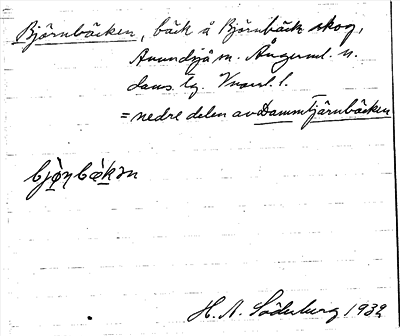 Björnbäcken, bäck å Björnbäck skog,
Anundsjö sn. Ångerml. n.
doms. tg. Vnorrl. l.
= nedre delen av Dammtjärnbäcken
bjö̀ṇbǽkən
H. A. Söderberg 1932